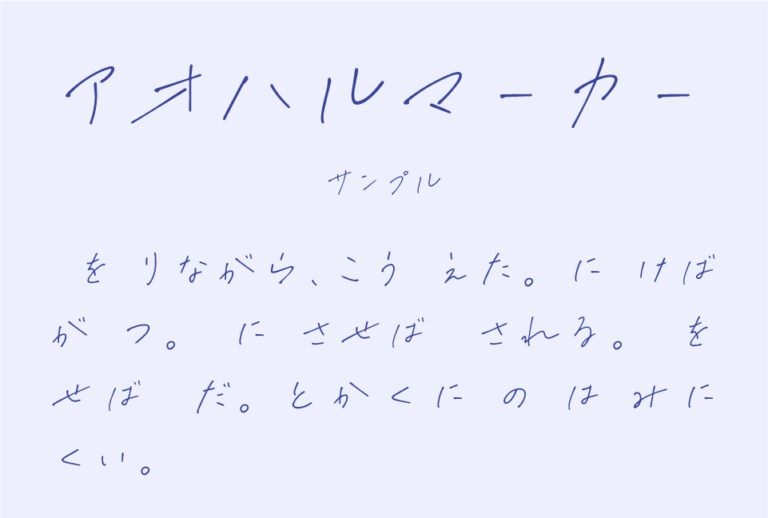 アオハルマーカー
サンプル
を りながら、こう えた。に けば
が つ。 に させば される。 を
せば だ。とかくに の は みに
くい。